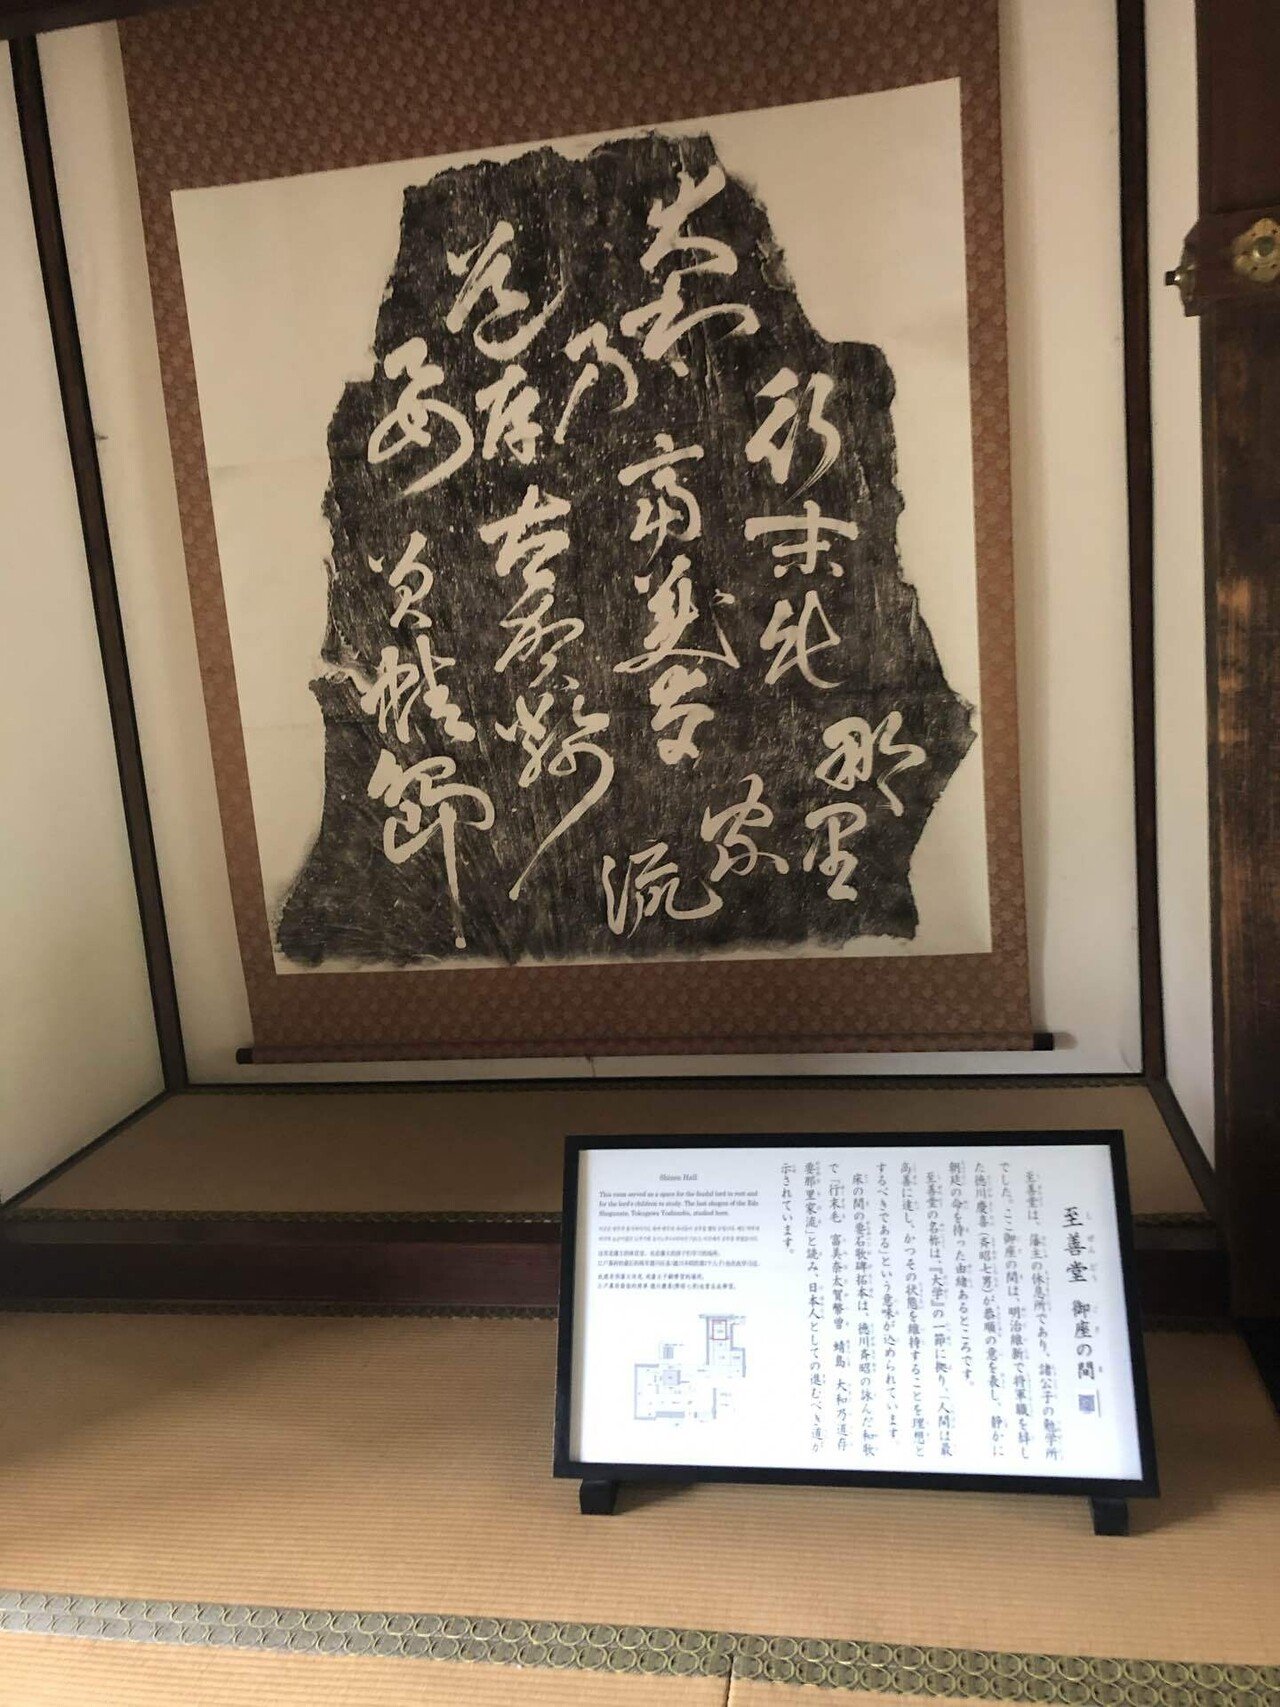 行末毛
富美奈
太賀幣曽
蜻島
大和
乃
道存
要
那里
家
流
至善堂 御座の間
至善堂は、藩主の休息所であり、諸公子の勉学所
でした。ここ御座の間は、明治維新で将軍職を辞し
た徳川慶喜(斉昭七男)が恭順の意を表し、静かに
朝廷の命を待った由緒あるところです。
至善堂の名称は、『大学』の一節に拠り、「人間は最
高善に達し、かつその状態を維持することを理想と
するべきである」という意味が込められています。
床の間の要石歌碑拓本は、徳川斉昭の詠んだ和歌
で「行末毛 富美奈太賀幣曽 蜻島 大和乃道存
要那里家流」と読み、日本人としての進むべき道が
示されています。
Shizen Hall
This room served as a space for the feudal lord to rest and
for the lord's children to study. The last shogun of the Edo
Shogunate, Tokugawa Yoshinobu, studied here.